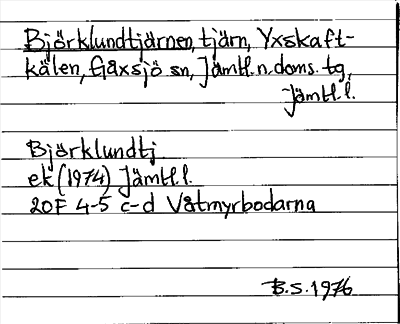 Björklundtjärnen, tjärn, Yxskaft-
kälen, Gåxsjö sn, Jämtl.n.doms.tg,
Jämtl.l.
Björklundtj
ek (1974) Jämtl.l.
20F 4-5 c-d Våtmyrbodarna
B.S.1976